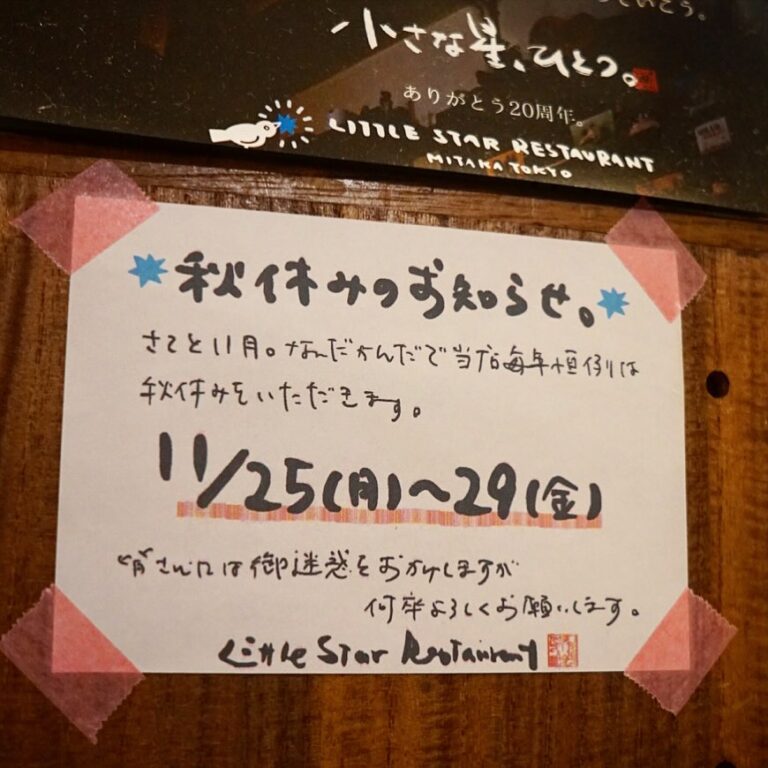 ていこう。
小さな星、ひとつ。
ありがとう20周年。
LITTLE STAR RESTAURANT
MITAKA TOKYO
秋休みのお知らせ。
さてと11月。なんだかんだで当店毎年恒例は
秋休みをいただきます。
11/25(月)〜29(金)
皆さんには御迷惑をおかけしますが
何卒よろしくお願いします。
Little Star Restaurant